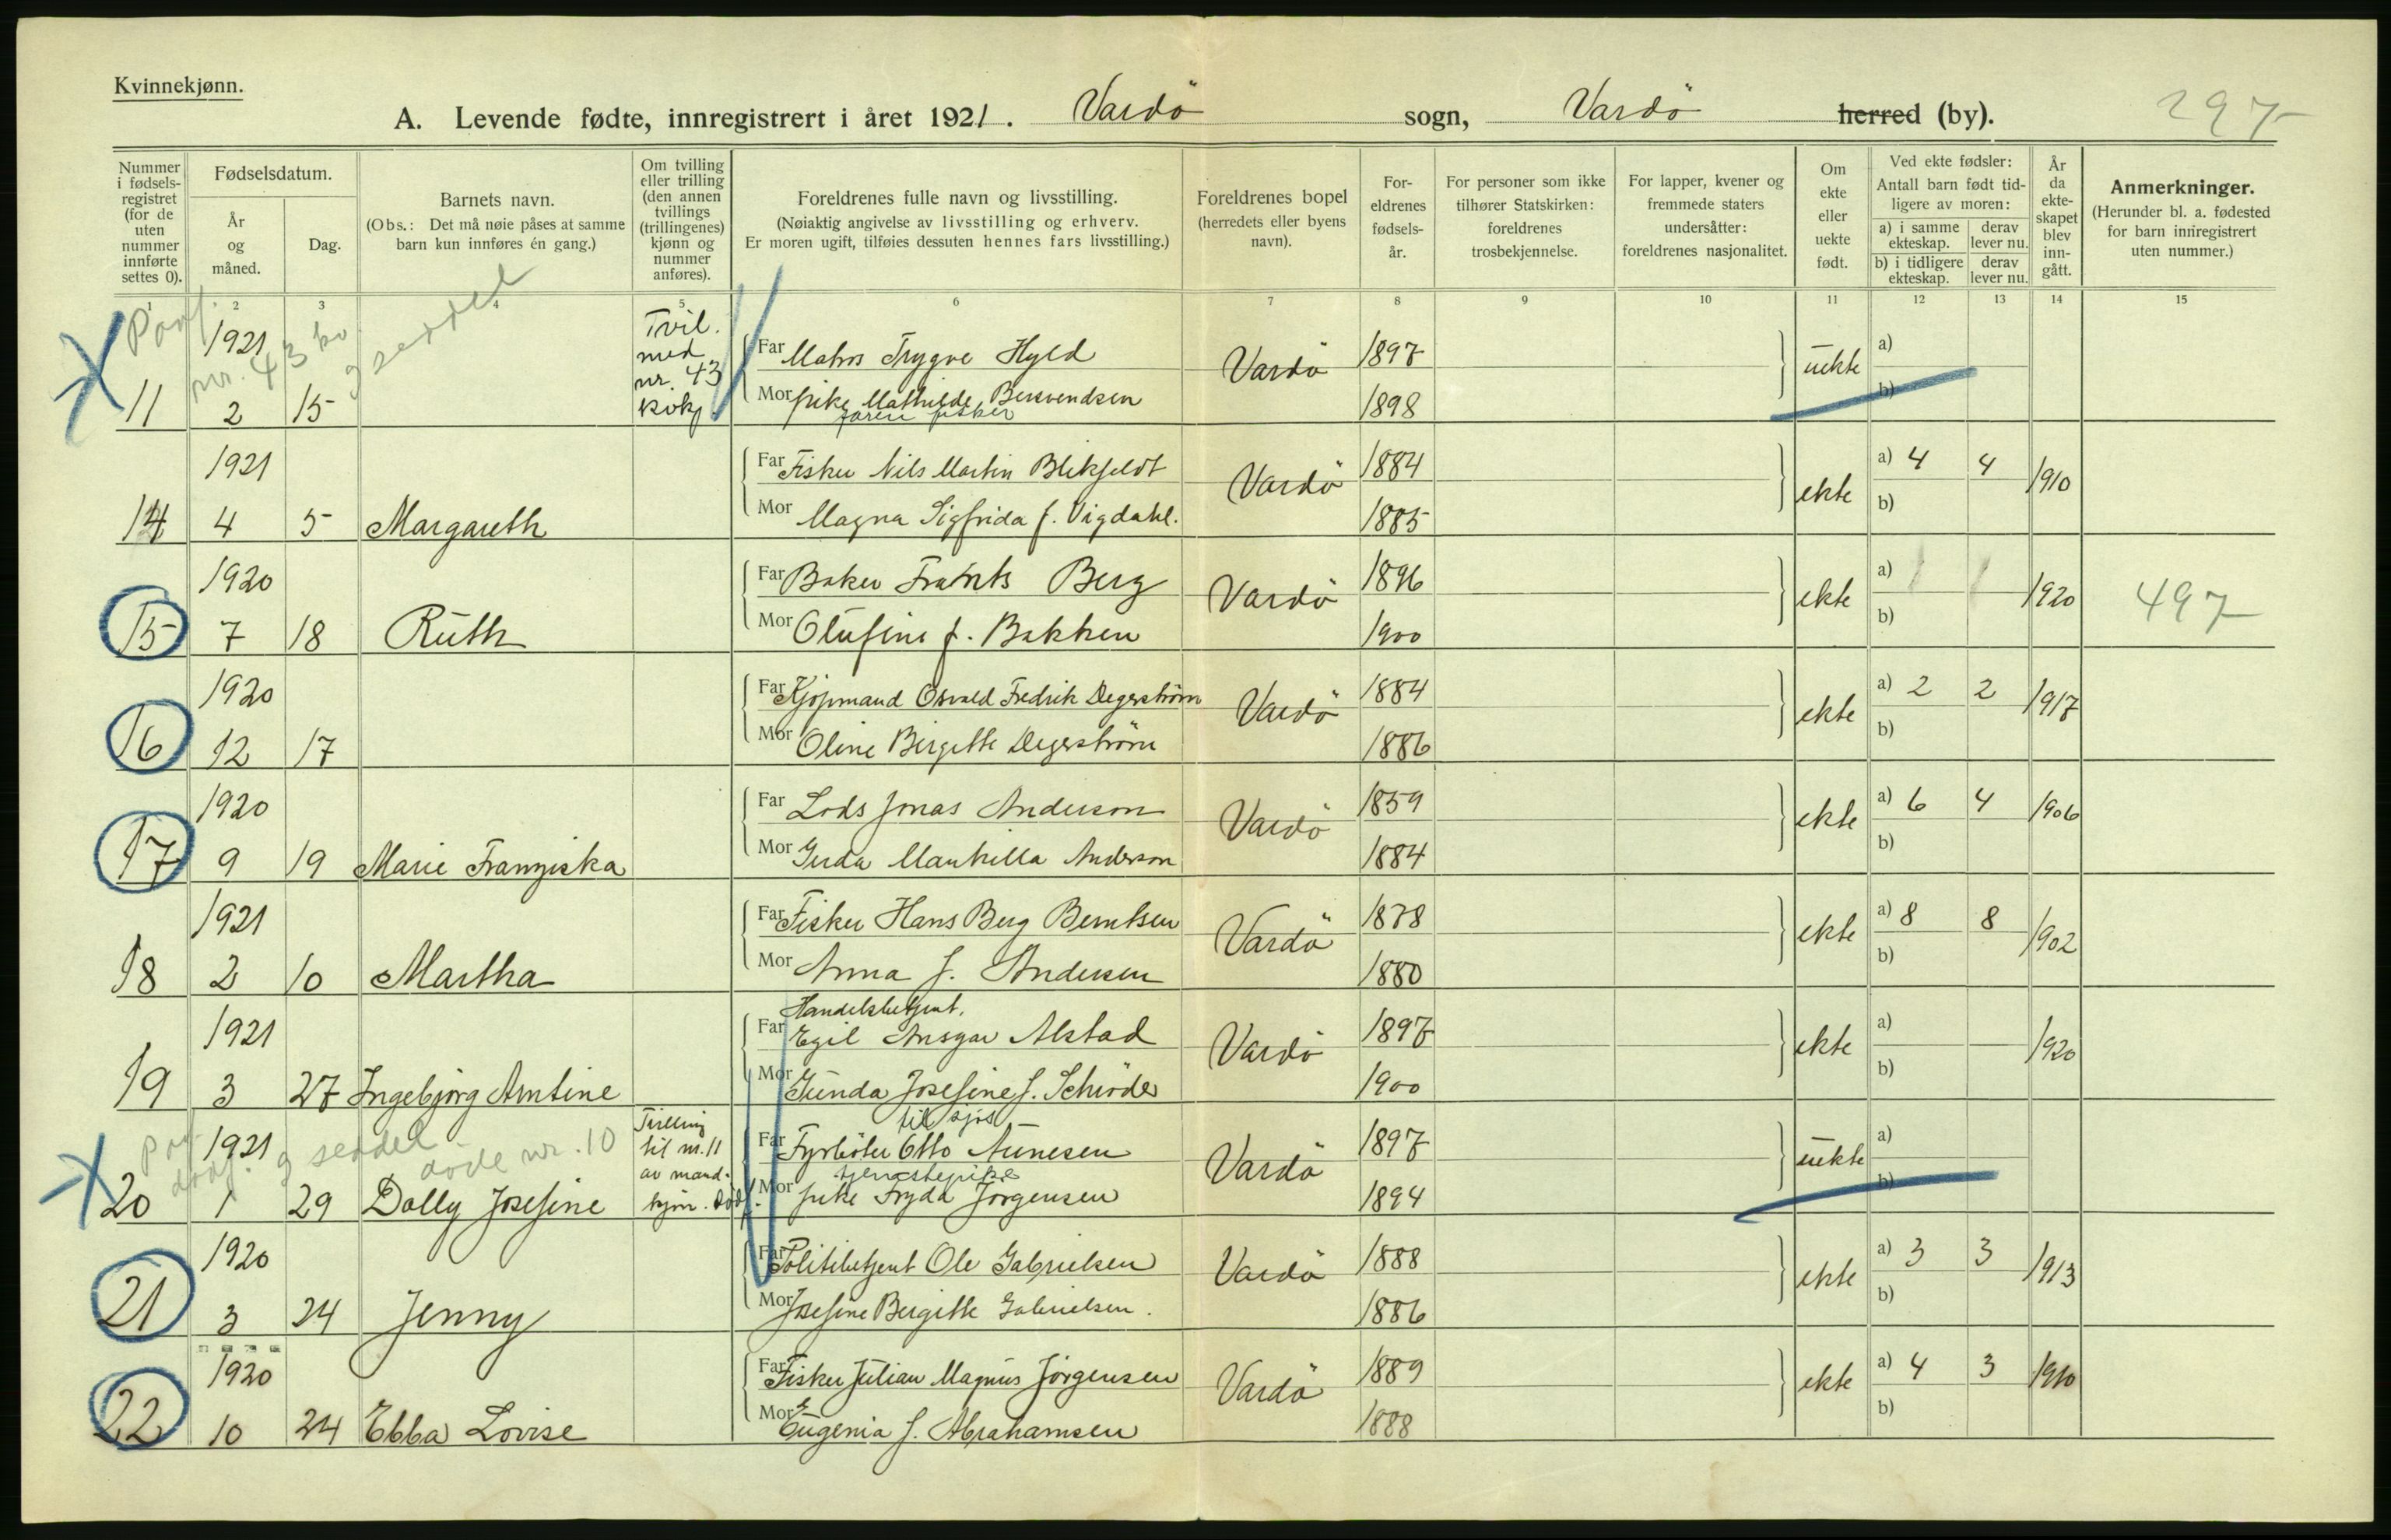 Kvinnekjønn.
A. Levende fødte, innregistrert i året 1921. Vardö sogn, Vardö herred (by). 297
Nummer i fødsels-registret (for de uten nummer innførte settes 0).
Fødselsdatum.
År og måned.
Dag.
Barnets navn.
(Obs.: Det må nøie påses at samme barn kun innføres én gang.)
Om tvilling eller trilling (den annen tvillings (trillingenes) kjønn og nummer anføres).
Foreldrenes fulle navn og livsstilling.
(Nøiaktig angivelse av livsstilling og erhverv.
Er moren ugift, tilføies dessuten hennes fars livsstilling.)
Foreldrenes bopel (herredets eller byens navn).
For-eldrenes fødsels-år.
For personer som ikke tilhører Statskirken: foreldrenes trosbekjennelse.
For lapper, kvener og fremmede staters undersåtter: foreldrenes nasjonalitet.
Om ekte eller uekte født.
Ved ekte fødsler: Antall barn født tid-ligere av moren:
a) i samme ekteskap. derav lever nu.
b) i tidligere ekteskap. derav lever nu.
År da ekte-skapet blev inn-gått.
Anmerkninger.
(Herunder bl. a. fødested for barn innregistrert uten nummer.)
1 2 3 4 5 6 7 8 9 10 11 12 13 14 15
nr. 43 kv g seddel
1921 Tvil. med nr. 43 kvkj. Far Matros Trygve Hyld Vardö 1897 uekte a)
11 2 15 Mor pike Mathilde Bersvendsen 1898 b)
faren fisker
1921 Far Fisker Nils Martin Blikfeldt Vardö 1884 ekte a) 4 4 1910
14 4 5 Margareth Mor Magna Sigfrida f. Vigdahl. 1885 b)
1920 Far Baker Frants Berg Vardö 1896 ekte a) 1 1 1920 497
15 7 18 Ruth Mor Olufine f. Bakken 1900 b)
1920 Far Kjøpmand Osvald Fredrik Degerström Vardö 1884 ekte a) 2 2 1917
16 12 17 Mor Oline Birgitte Degerström 1886 b)
1920 Far Lods Jonas Anderson Vardö 1859 ekte a) 6 4 1906
17 9 19 Marie Franziska Mor Gerda Mankilla Anderson 1884 b)
1921 Far Fisker Hans Berg Berntsen Vardö 1878 ekte a) 8 8 1902
18 2 10 Martha Mor Anna f. Andersen 1880 b)
Handelsbetjent.
1921 Far Egil Ansgar Alstad Vardö 1897 ekte a) 1920
19 3 27 Ingebjørg Arntine Mor Gunda Josefine f. Schröder 1900 b)
til sjøs
g seddel døde nr. 10
1921 Tvilling til nr. 11 av mand-kjøn. Dödf. Far Fyrböter Otto Aunesen Vardö 1897 uekte a)
tjenestepike
20 1 29 Dolly Josefine Mor pike Fryda Jørgensen 1894 b)
1920 Far Politibetjent Ole Gabrielsen Vardö 1888 ekte a) 3 3 1913
21 3 24 Jenny Mor Josefine Bergitte Gabrielsen. 1886 b)
1920 Far Fisker Julian Magnus Jørgensen Vardö 1889 ekte a) 4 3 1910
22 10 24 Ebba Lovise Mor Eugenia f. Abrahamsen 1888 b)